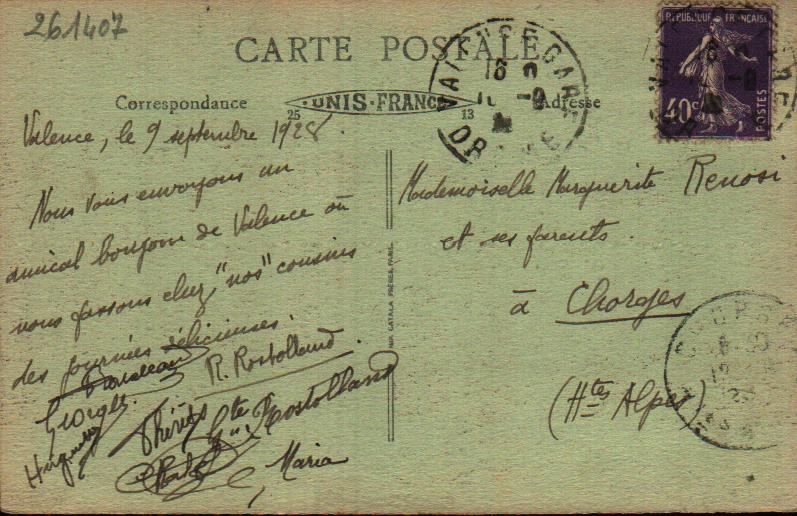 261407
CARTE POSTALE
Correspondance
UNIS-FRANCE
25
13
Adresse
VALENCE GARE
DR
REPUBLIQUE FRANÇAISE
40c
POSTES
Valence, le 9 septembre 1928.
Nous vous envoyons un
amical bonjour de Valence où
nous passons chez "nos" cousins
des journées délicieuses.
R. Rostolland.
Georges
Thérèse
Rostolland
Maria
CATALA FRÈRES, PARIS
Mademoiselle Marguerite Renosi
et ses parents.
à Chorges
(Htes Alpes)